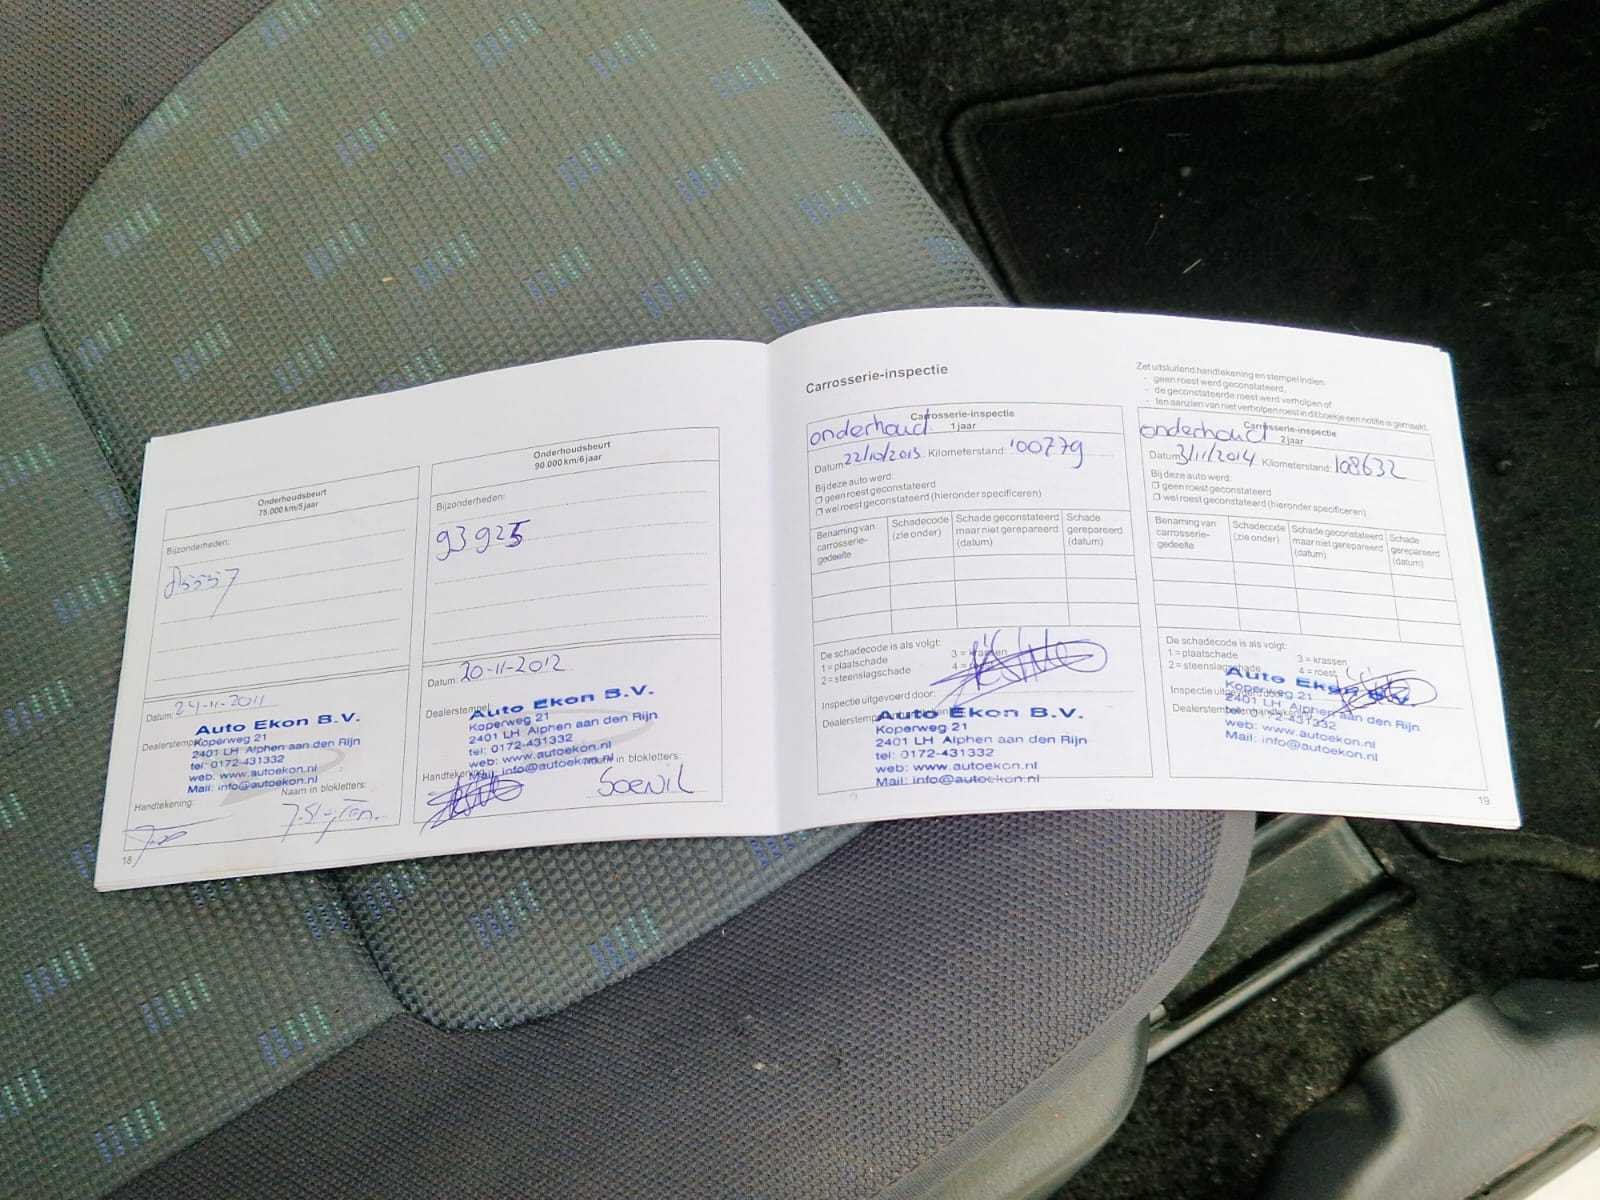 Onderhoudsbeurt
75.000 km/5 jaar
Bijzonderheden:
85557
Datum: 24-11-2011
Dealerstempel
Auto Ekon B.V.
Koperweg 21
2401 LH Alphen aan den Rijn
tel: 0172-431332
web: www.autoekon.nl
Mail: info@autoekon.nl
Handtekening:
Naam in blokletters:
18
Onderhoudsbeurt
90.000 km/6 jaar
Bijzonderheden:
93925
Datum: 20-11-2012
Dealerstempel
Auto Ekon B.V.
Koperweg 21
2401 LH Alphen aan den Rijn
tel: 0172-431332
web: www.autoekon.nl
Mail: info@autoekon.nl
Handtekening
in blokletters:
Carrosserie-inspectie
Carrosserie-inspectie
onderhoud 1 jaar
Datum: 22/10/2013 Kilometerstand: '00779
Bij deze auto werd:
geen roest geconstateerd
wel roest geconstateerd (hieronder specificeren)
Benaming van carrosserie-gedeelte
Schadecode (zie onder)
Schade geconstateerd maar niet gerepareerd (datum)
Schade gerepareerd (datum)
De schadecode is als volgt:
1 = plaatschade
2 = steenslagschade
3 = krassen
4 =
Inspectie uitgevoerd door:
Auto Ekon B.V.
Koperweg 21
2401 LH Alphen aan den Rijn
tel: 0172-431332
web: www.autoekon.nl
Mail: info@autoekon.nl
Zet uitsluitend handtekening en stempel indien:
- geen roest werd geconstateerd,
- de geconstateerde roest werd verholpen of
- ten aanzien van niet verholpen roest in dit boekje een notitie is gemaakt.
Carrosserie-inspectie
onderhoud 2 jaar
Datum: 3/11/2014 Kilometerstand: 108632
Bij deze auto werd:
geen roest geconstateerd
wel roest geconstateerd (hieronder specificeren)
Benaming van carrosserie-gedeelte
Schadecode (zie onder)
Schade geconstateerd maar niet gerepareerd (datum)
Schade gerepareerd (datum)
De schadecode is als volgt:
1 = plaatschade
2 = steenslagschade
3 = krassen
4 = roest
Auto Ekon B.V.
Koperweg 21
2401 LH Alphen aan den Rijn
tel: 0172-431332
web: www.autoekon.nl
Mail: info@autoekon.nl
19